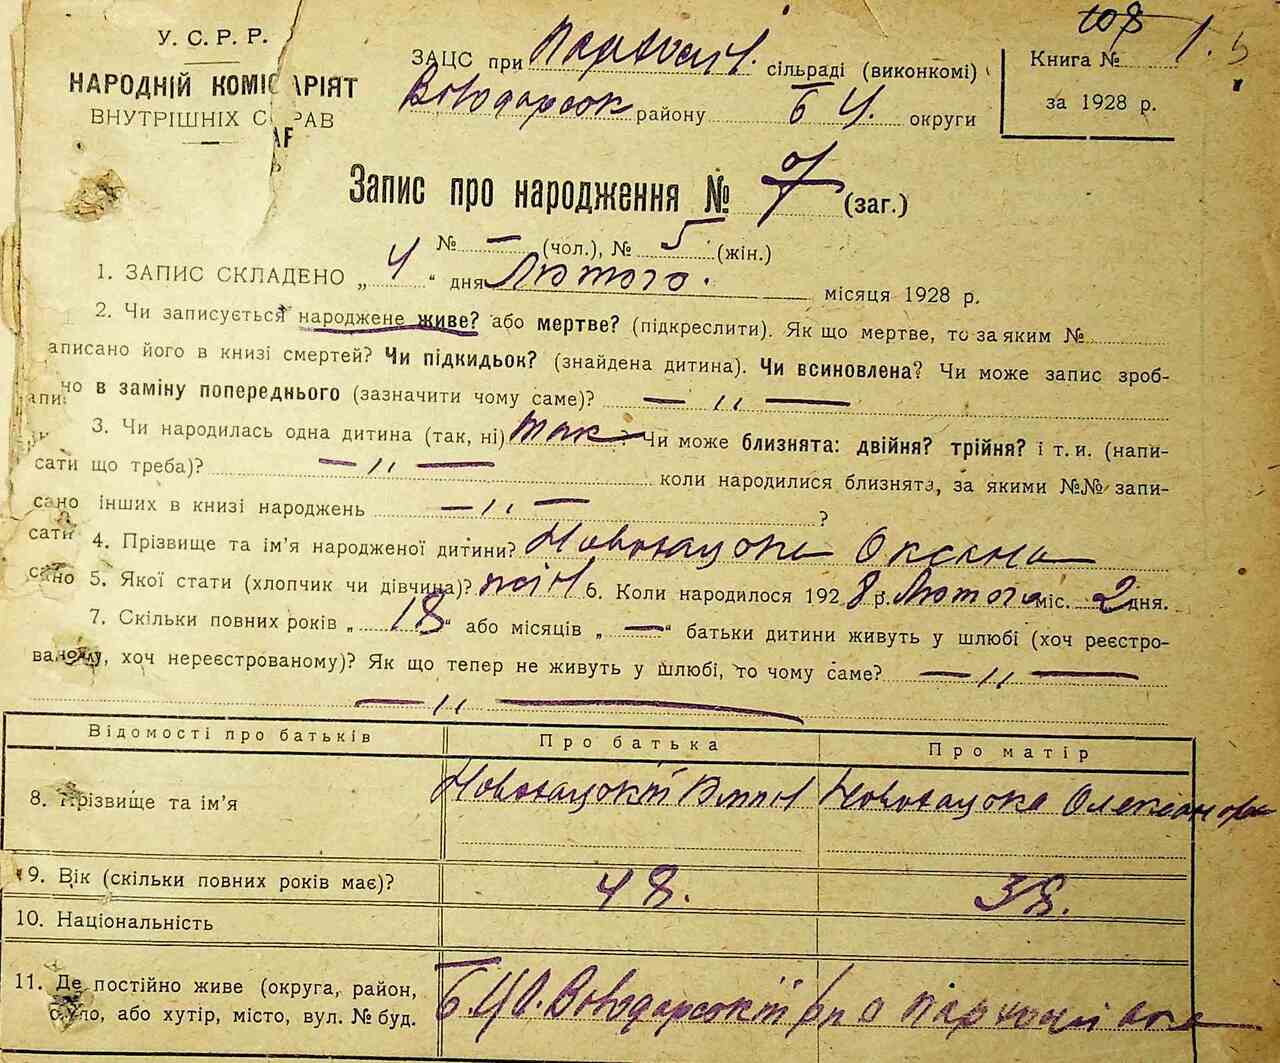 У. С. Р. Р.
НАРОДНІЙ КОМІСАРІЯТ
ВНУТРІШНІХ СПРАВ
108 1.
ЗАЦС при сільраді (виконкомі)
Володарськ району Б Ц. округи
Книга №
за 1928 р.
Запис про народження № 7 (заг.)
№ — (чол.), № 5 (жін.)
1. ЗАПИС СКЛАДЕНО „ 4 “ дня Лютого. місяця 1928 р.
2. Чи записується народжене живе? або мертве? (підкреслити). Як що мертве, то за яким №
аписано його в книзі смертей? Чи підкидьок? (знайдена дитина). Чи всиновлена? Чи може запис зроб-
но в заміну попереднього (зазначити чому саме)? — ,, —
3. Чи народилась одна дитина (так, ні) так Чи може близнята: двійня? трійня? і т. и. (напи-
сати що треба)? — ,, — коли народилися близнята, за якими №№ запи-
сано інших в книзі народжень — ,, — ?
4. Прізвище та ім’я народженої дитини? Оксана
5. Якої стати (хлопчик чи дівчина)? жін 6. Коли народилося 1928 р. Лютого міс. 2 дня.
7. Скільки повних років „ 18 “ або місяців „ — “ батьки дитини живуть у шлюбі (хоч реєстро-
ваному, хоч нереєстрованому)? Як що тепер не живуть у шлюбі, то чому саме? — ,, —
— ,, —
Відомості про батьків Про батька Про матір
8. Прізвище та ім’я Олександра
9. Вік (скільки повних років має)? 48. 38.
10. Національність
11. Де постійно живе (округа, район, село, або хутір, місто, вул. № буд.
Б.Ц.О. Володарський